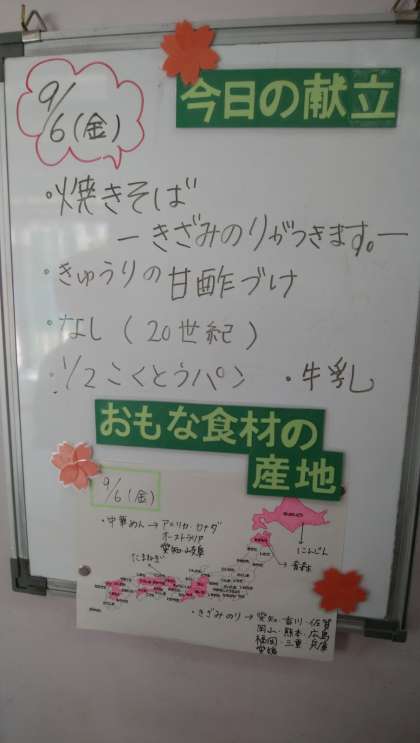 9/6(金)
今日の献立
・焼きそば
ーきざみのりがつきます。ー
・きゅうりの甘酢づけ
・なし(20世紀)
・1/2こくとうパン ・牛乳
おもな食材の
産地
9/6(金)
・中華めん→アメリカ・カナダ
オーストラリア
愛知・岐阜
たまねぎ
にんじん
青森
・きざみのり→愛知・香川・佐賀
岡山・熊本・広島
福岡・三重・兵庫
愛媛